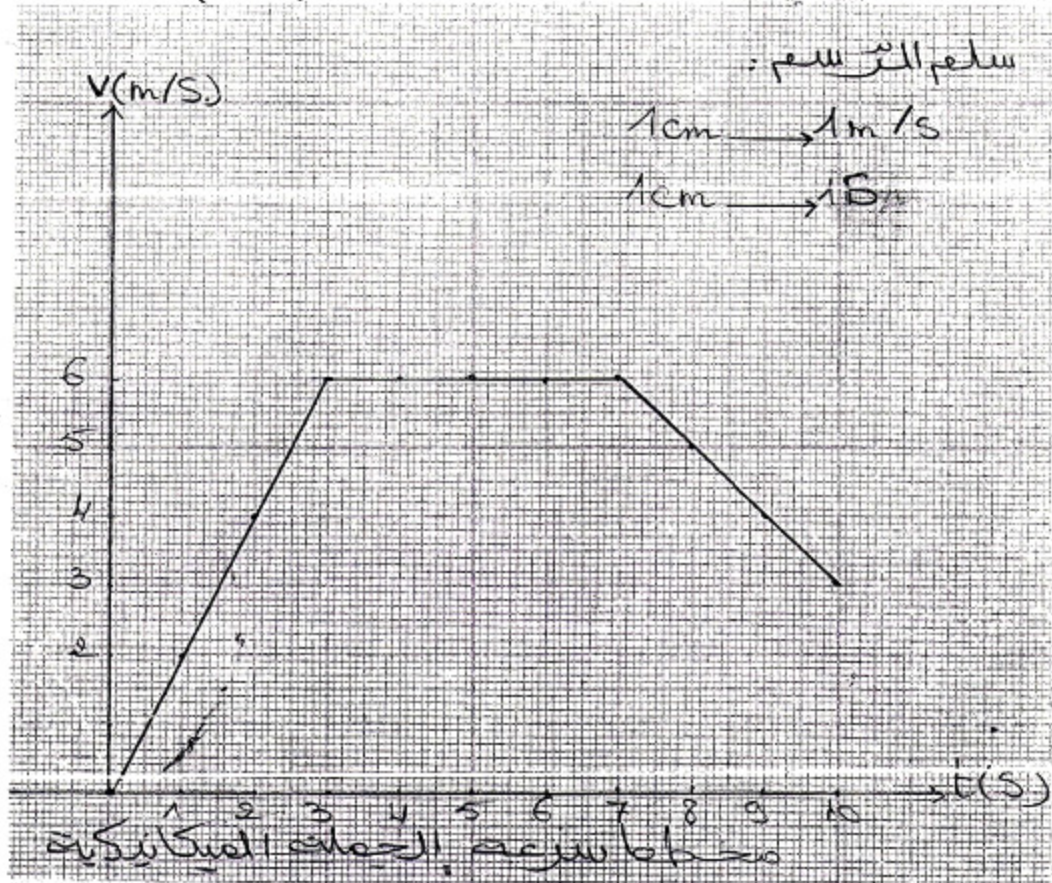 سلم الرسم :
V(m/s)
1cm → 1m/s
1cm → 1s
6
5
4
3
2
1 2 3 4 5 6 7 8 9 10
t(s)
مخطط سرعة الجملة الميكانيكية